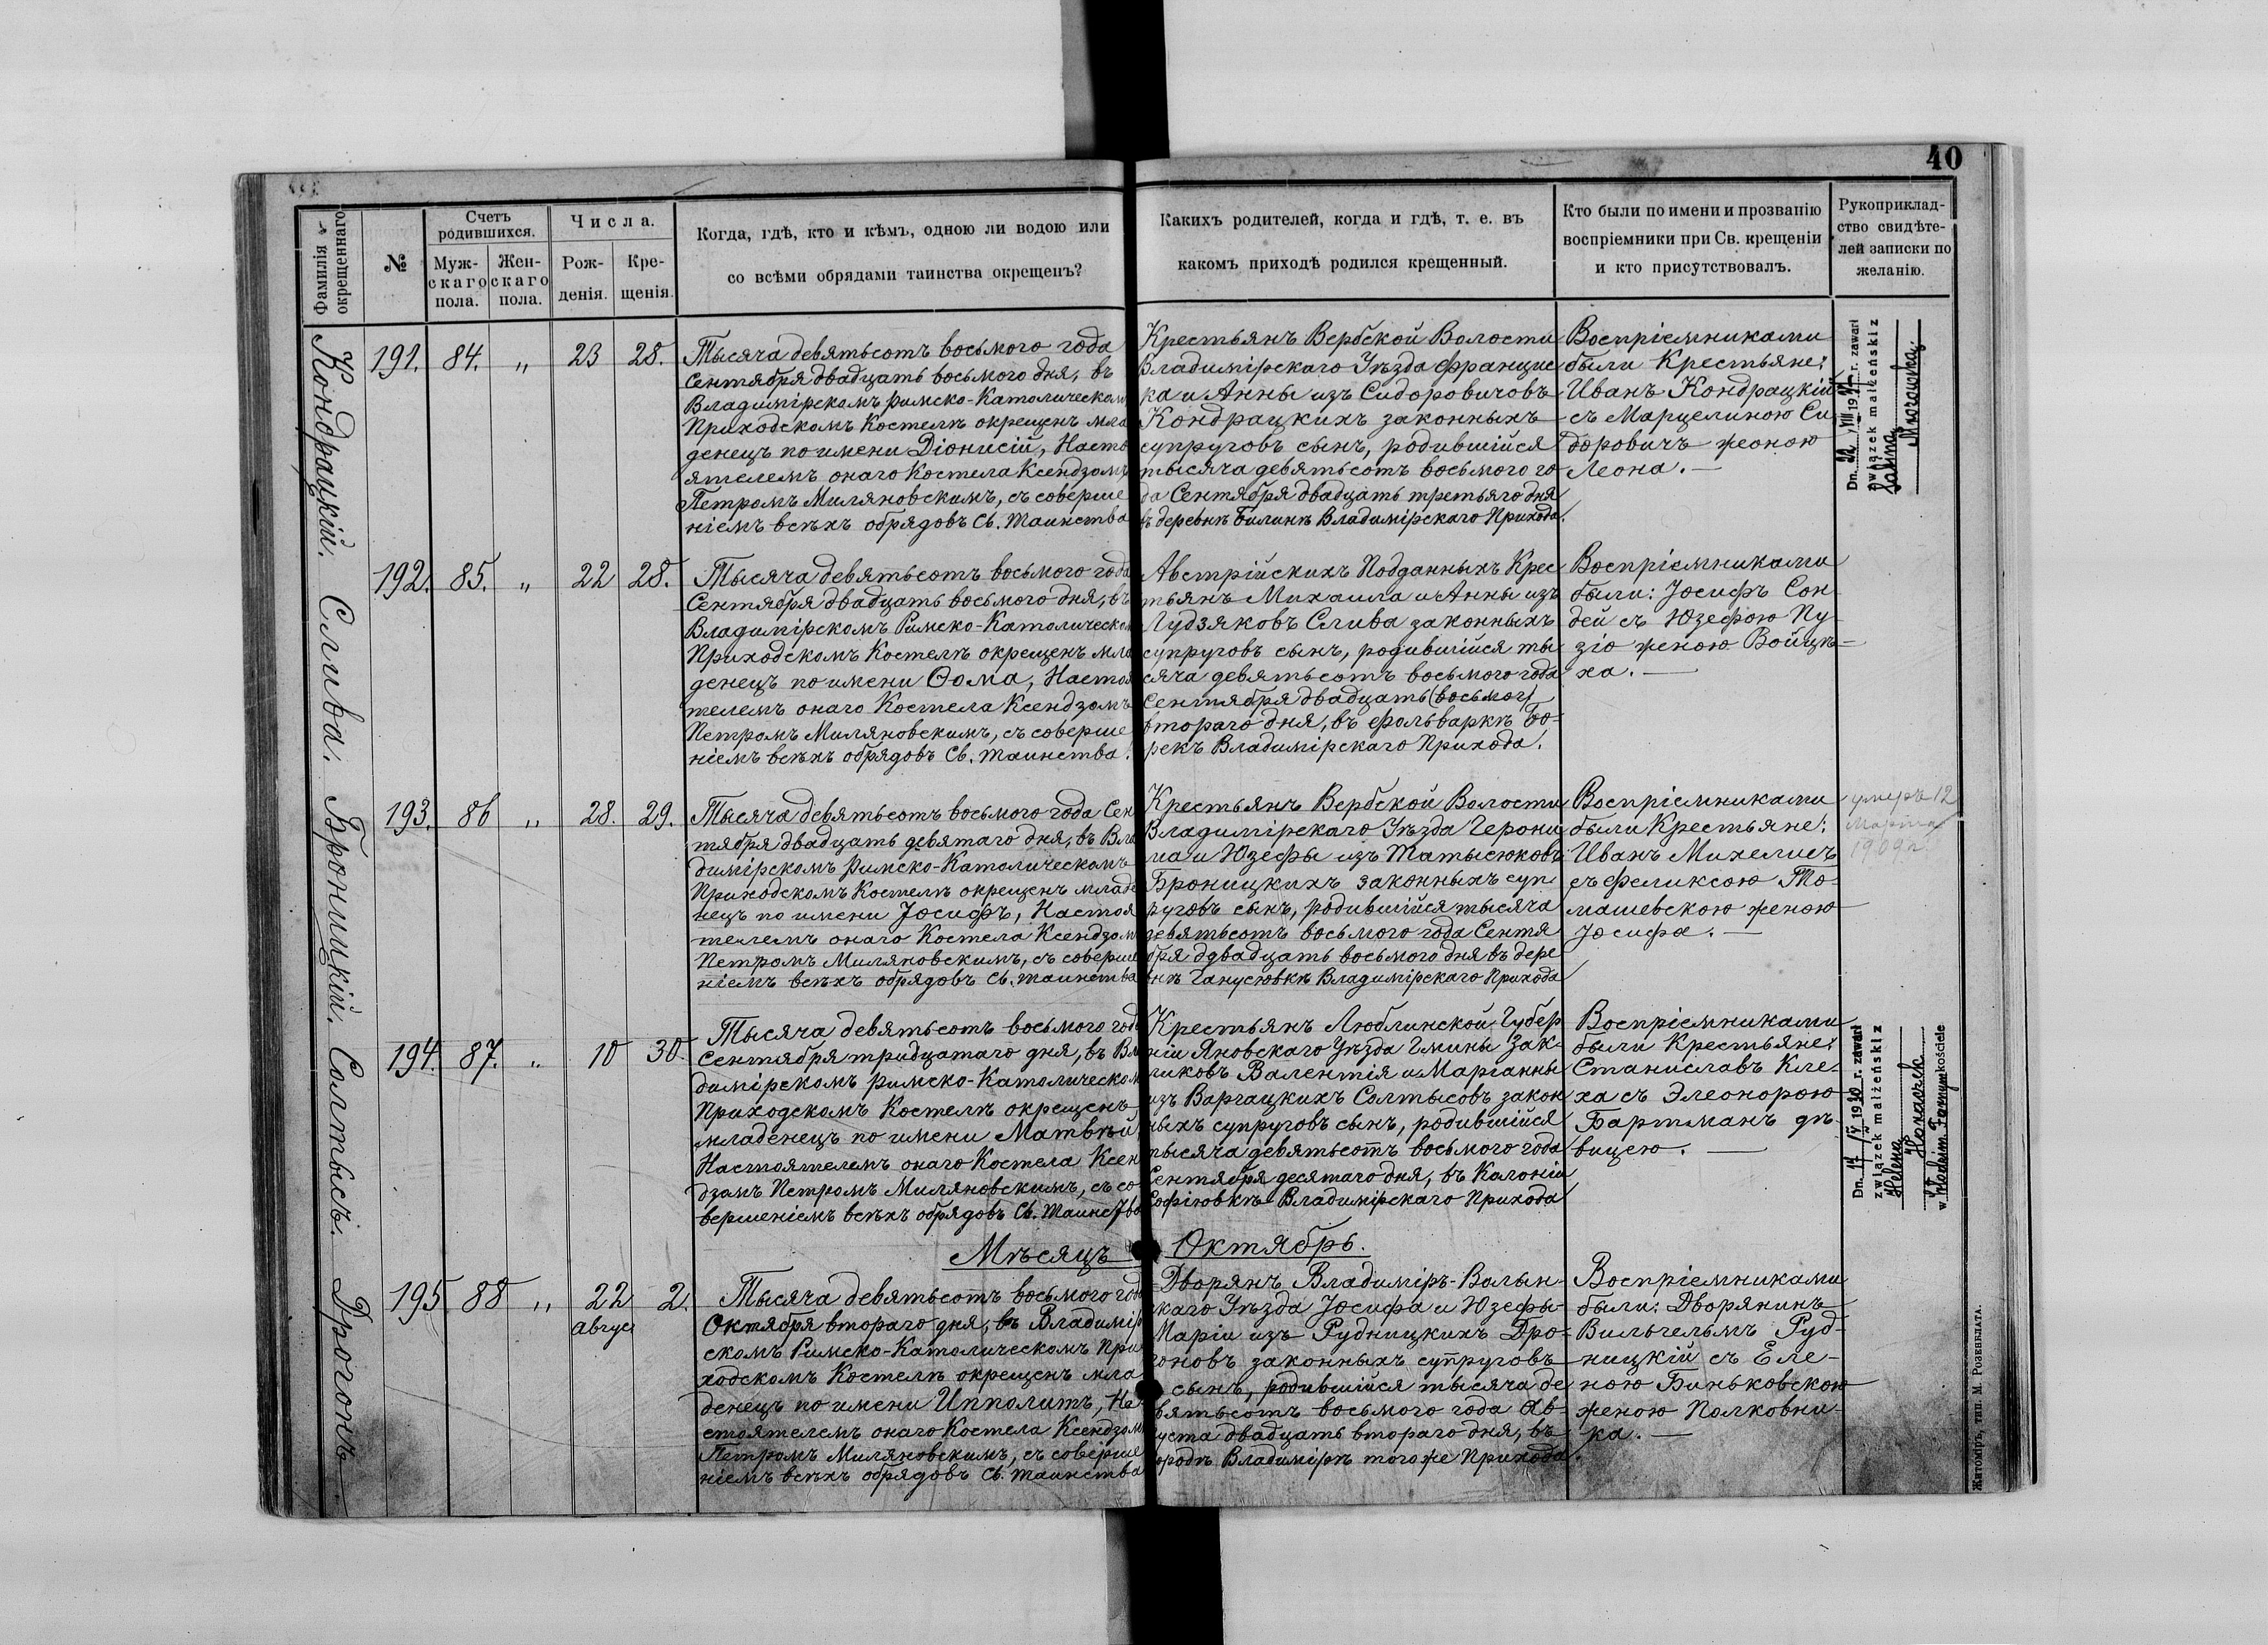 40
Фамилія окрещеннаго
№
Счетъ родившихся.
Муж-
скаго
пола.
Жен-
скаго
пола.
Числа.
Рож-
денія.
Кре-
щенія.
Когда, гдѣ, кто и кѣмъ, одною ли водою или
со всѣми обрядами таинства окрещенъ?
Какихъ родителей, когда и гдѣ, т. е. въ
какомъ приходѣ родился крещенный.
Кто были по имени и прозванію
воспріемники при Св. крещеніи
и кто присутствовалъ.
Рукоприклад-
ство свидѣте-
лей записки по
желанію.
Кондрацкій.
191. 84. „ 23 28.
Тысяча девятьсотъ восьмого года
Сентября двадцать восьмого дня, въ
Владимірскомъ Римско-Католическом
Приходскомъ Костелѣ окрещенъ мла
денецъ по имени Діонисій, Насто
ятелемъ онаго Костела Ксендзомъ
Петромъ Миляновскимъ, съ соверше
ніемъ всѣхъ обрядовъ Св. Таинства
Крестьянъ Вербской Волости
Владимірскаго Уѣзда Францис
ка и Анны изъ Сидоровичовъ
Кондрацкихъ законныхъ
супруговъ сынъ, родившійся
тысяча девятьсотъ восьмого го
да Сентября двадцать третьяго дня
въ деревнѣ Билинѣ Владимірскаго Прихода.
Воспріемниками
были Крестьяне:
Иванъ Кондрацкій
съ Марцелиною Си
доровичъ женою
Леона. —
Dn. 22 VIII 19 r. zawarł
związek małżeński z
Слива.
192. 85. „ 22 28.
Тысяча девятьсотъ восьмого года
Сентября двадцать восьмого дня, въ
Владимірскомъ Римско-Католическом
Приходскомъ Костелѣ окрещенъ мла
денецъ по имени Ѳома, Настоя
телемъ онаго Костела Ксендзомъ
Петромъ Миляновскимъ, съ соверше
ніемъ всѣхъ обрядовъ Св. Таинства.
Австрійскихъ Подданныхъ Крес
тьянъ Михаила и Анны изъ
Лудзяковъ Слива законныхъ
супруговъ сынъ, родившійся ты
сяча девятьсотъ восьмого года
Сентября двадцать (восьмог)
второго дня, въ фольваркѣ Бо-
рекъ Владимірскаго Прихода.
Воспріемниками
были: Іосифъ Сон
дей съ Юзефою Пу-
зіо женою Войцѣ-
ха. —
Броницкій.
193. 86 „ 28. 29.
Тысяча девятьсотъ восьмого года Сен
тября двадцать девятаго дня, въ Вла
димірскомъ Римско-Католическомъ
Приходскомъ Костелѣ окрещенъ младе
нецъ по имени Іосифъ, Настоя
телемъ онаго Костела Ксендзом
Петромъ Миляновскимъ, съ соверше
ніемъ всѣхъ обрядовъ Св. Таинства
Крестьянъ Вербской Волости
Владимірскаго Уѣзда Герони
ма и Юзефы изъ Матысюковъ
Броницкихъ законныхъ суп
руговъ сынъ, родившійся тысяча
девятьсотъ восьмого года Сентя
бря двадцать восьмого дня въ дере
внѣ Ганусювкѣ Владимірскаго Прихода
Воспріемниками
были Крестьяне:
Иванъ Михелисъ
съ Феликсою То-
машевскою женою
Іосифа. —
умеръ 12
Марта
1909г
Солтысъ.
194. 87. „ 10 30.
Тысяча девятьсотъ восьмого года
Сентября тридцатаго дня, въ Вла
димірскомъ Римско-Католическом
Приходскомъ Костелѣ окрещенъ
младенецъ по имени Матвѣй,
Настоятелемъ онаго Костела Ксен
дзомъ Петромъ Миляновскимъ, съ со
вершеніемъ всѣхъ обрядовъ Св. Таинства
Крестьянъ Люблинской Губер
ніи Яновскаго Уѣзда Гмины Зак-
ликовъ Валентія и Маріанны
изъ Варгацкихъ Солтысовъ закон
ныхъ супруговъ сынъ, родившійся
тысяча девятьсотъ восьмого года
Сентября десятаго дня, въ Колоніи
Софіювкѣ Владимірскаго Прихода
Воспріемниками
были Крестьяне:
Станиславъ Кле-
ха съ Элеонорою
Бартманъ дѣ-
вицею. —
Dn. 19 r. zawarł
związek małżeński z
Heleną
w Włodzim. Farnym kościele
Мѣсяцъ Октябрь.
Дрогонъ
195 88 „ 22 2.
Август
Тысяча девятьсотъ восьмого года
Октября второго дня, въ Владимір
скомъ Римско-Католическомъ При
ходскомъ Костелѣ окрещенъ мла
денецъ по имени Ипполитъ, На
стоятелемъ онаго Костела Ксендзом
Петромъ Миляновскимъ, съ соверше
ніемъ всѣхъ обрядовъ Св. Таинства
Дворянъ Владиміръ-Волын-
скаго Уѣзда Іосифа и Юзефы-
Маріи изъ Рудницкихъ Дро-
гоновъ законныхъ супруговъ
сынъ, родившійся тысяча де
вятьсотъ восьмого года Ав-
густа двадцать второго дня, въ
городѣ Владимірѣ того же Прихода.
Воспріемниками
были: Дворянинъ
Вильгельмъ Руд-
ницкій съ Еле-
ною Биньковскою
женою Полковни-
ка. —
Житоміръ, тип. М. Розенблата.